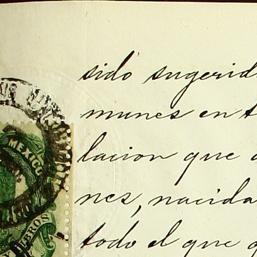 sido sugerid
munes en t
lacion que a
nes, nacida
todo el que q
MEXICO